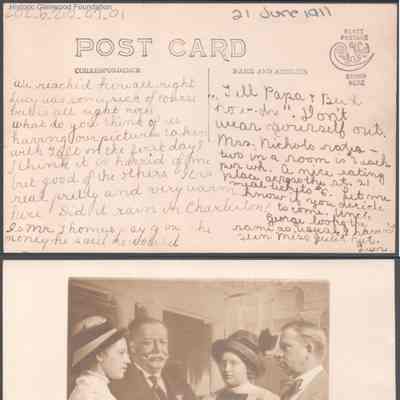 Historic Glenwood Foundation
21 June 1911
POST CARD
CORRESPONDENCE
NAME AND ADDRESS
PLACE
POSTAGE
STAMP
HERE
We reached here all right
Lucy was some sick of course
but is all right now.
What do you think of us
having our pictures taken
with Taft on the first day?
I think it is horrid of me
but good of the others. It is
real pretty and very warm
here. Did it rain in Charleston?
Is Mr. Thomas paying on the
money he said he would
Tell Papa &
Don't
wear yourself out.
Mrs. Nichols says
two in a room is $ each
per wk. A nice eating
place across the st. 21
meal tickets $6. Let me
know if you decide
to come, since
George looks the
same as usual, I haven't
seen Miss yet.